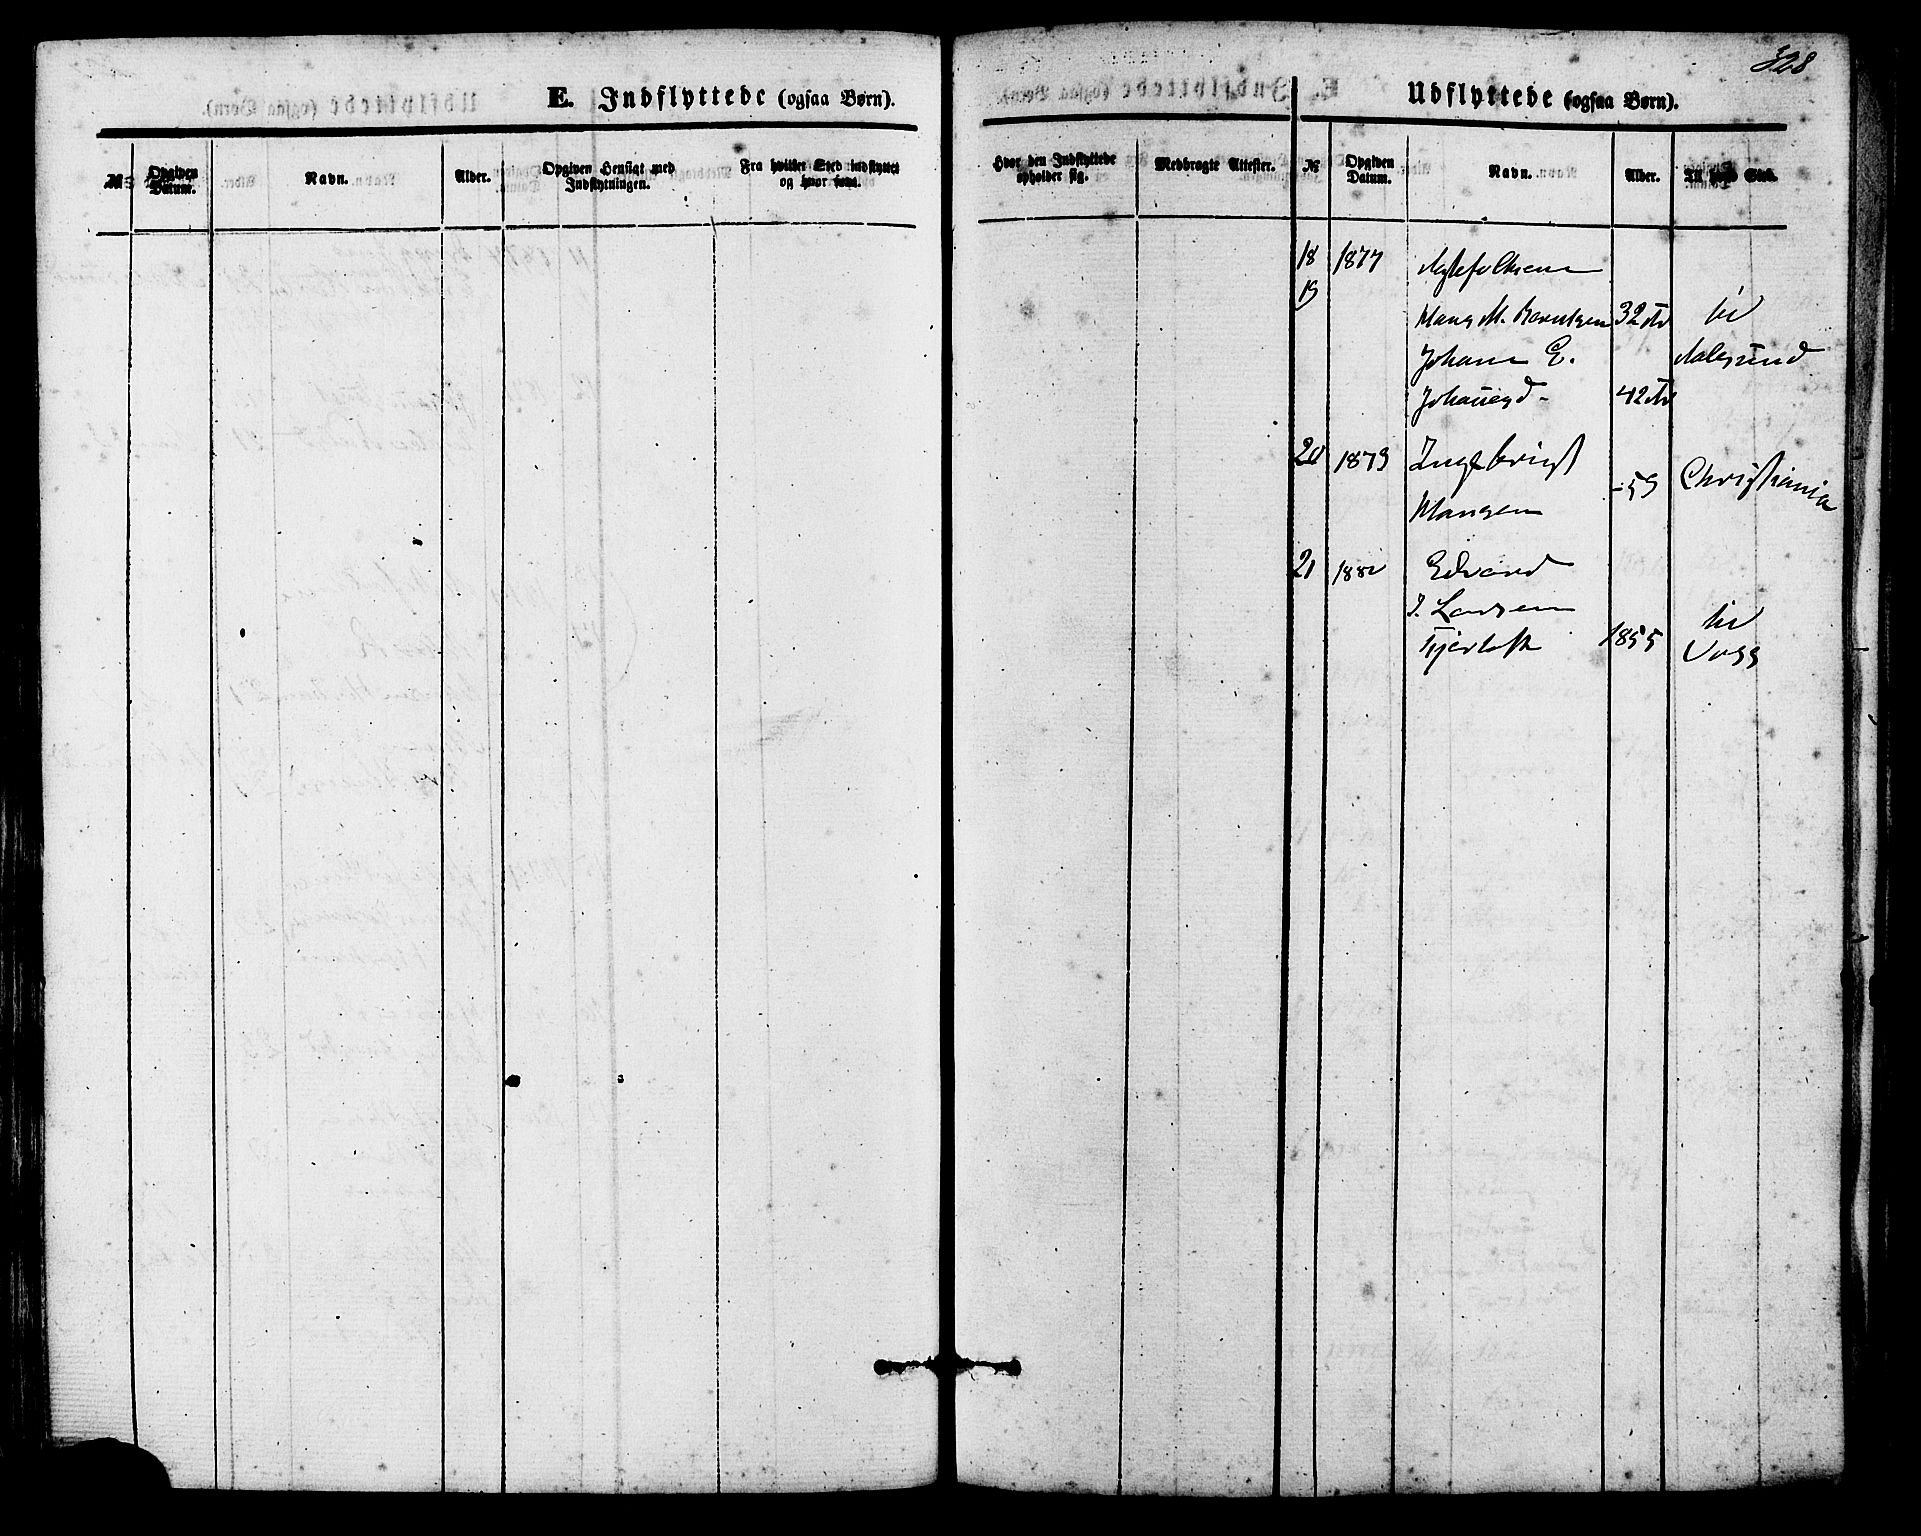 328
E. Indflyttede (ogsaa Børn).
Udflyttede (ogsaa Børn).
№
Opgiven Datum.
Navn.
Alder.
Opgiven Hensigt med Indflytningen.
Fra hvilket Sted indflyttet og hvor født.
Hvor den Indflyttede opholder sig.
Medbragte Attester.
№
Opgiven Datum.
Navn.
Alder.
Til hvad Sted.
18 1877 Ægtefolkene
19
Hans M. Berntsen 32 til
Johane E. Aalesund
Johansd- 42
20 1879 Ingebrigt
-59 Christiania
Hansen
21 188 Edvard
I. Larsen til
Fjertoft 1855 Voss